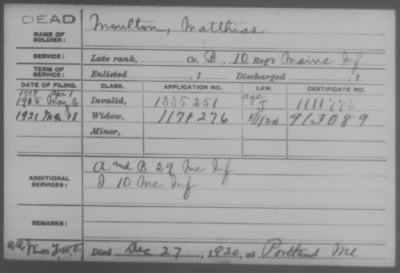 DEAD
NAME OF SOLDIER: Moulton, Matthias
SERVICE: Late rank, Co. B, 10 Reg't Maine Inf
TERM OF SERVICE: Enlisted , 1 Discharged , 1
DATE OF FILING. CLASS. APPLICATION NO. LAW. CERTIFICATE NO.
1905 May Invalid, 1335251 age
1921 Widow, 1171276 5/1/20 913089
Minor,
ADDITIONAL SERVICES: A and B 29 Me Inf
D 10 Me Inf
REMARKS:
Died Dec 27, 1920, at Portland Me